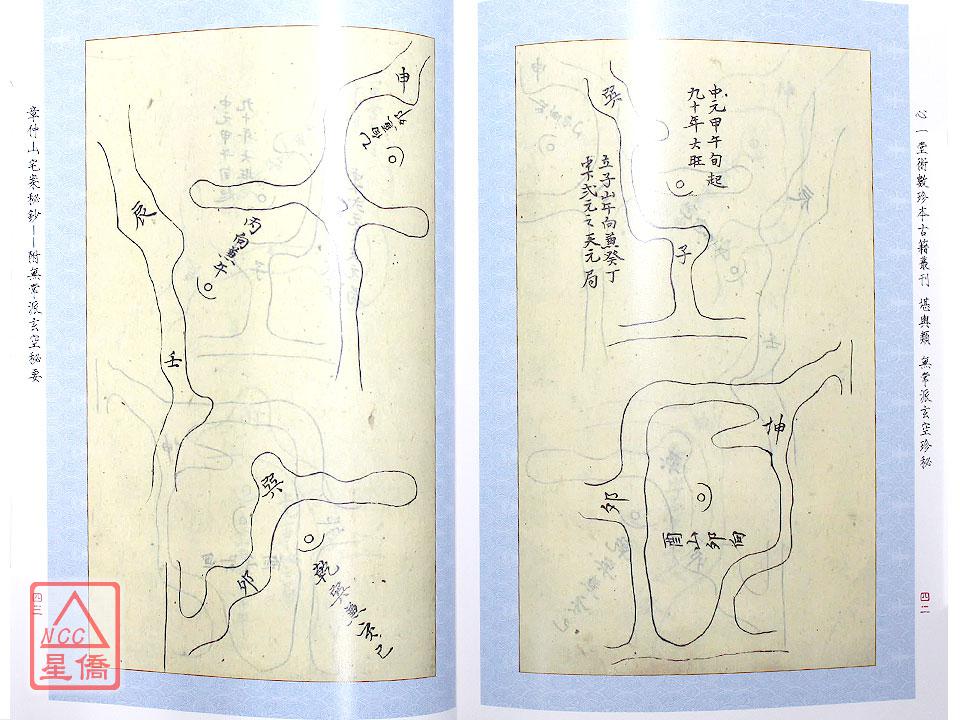 心一堂術數珍本古籍叢刊 堪輿類 無常派玄空珍秘
四二
中元甲午旬起
九十年大旺
立子山午向兼癸丁
巽
子
坤
卯
酉山卯向
章仲山宅案秘鈔——附無常派玄空秘要
四三
申
辰
丙向兼午
壬
巽
卯
乾
NCC
星僑